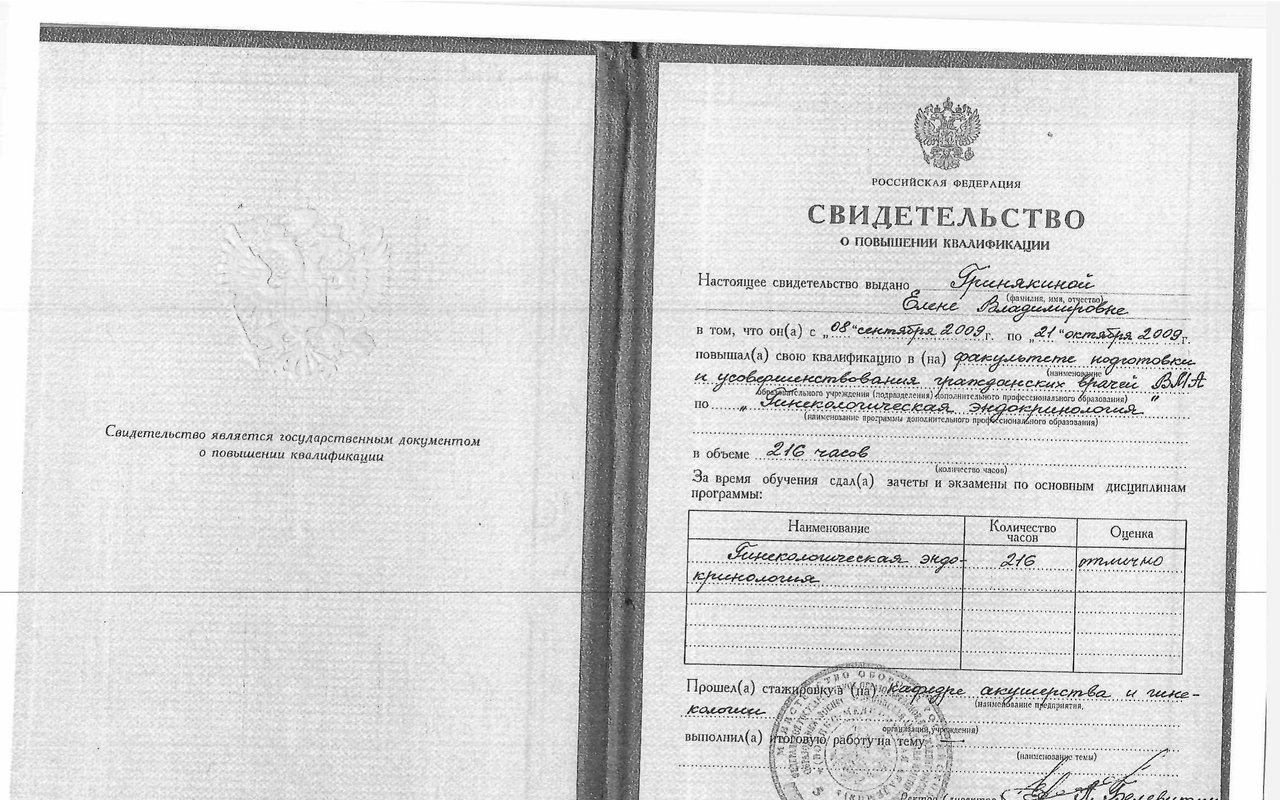 Свидетельство является государственным документом
о повышении квалификации
РОССИЙСКАЯ ФЕДЕРАЦИЯ
СВИДЕТЕЛЬСТВО
О ПОВЫШЕНИИ КВАЛИФИКАЦИИ
Настоящее свидетельство выдано Гринякиной
(фамилия, имя, отчество)
Елене Владимировне
в том, что он(а) с „08“ сентября 2009 г. по „21“ октября 2009 г.
повышал(а) свою квалификацию в (на) факультете подготовки
(наименование
и усовершенствования гражданских врачей ВМА
образовательного учреждения (подразделения) дополнительного профессионального образования)
по „Гинекологическая эндокринология“
(наименование программы дополнительного профессионального образования)
в объеме 216 часов
(количество часов)
За время обучения сдал(а) зачеты и экзамены по основным дисциплинам
программы:
Наименование Количество часов Оценка
Гинекологическая эндо- 216 отлично
кринология
Прошел(а) стажировку в (на) кафедре акушерства и гине-
(наименование предприятия,
кологии
организации, учреждения)
выполнил(а) итоговую работу на тему —
(наименование темы)
МИНИСТЕРСТВО ОБОРОНЫ